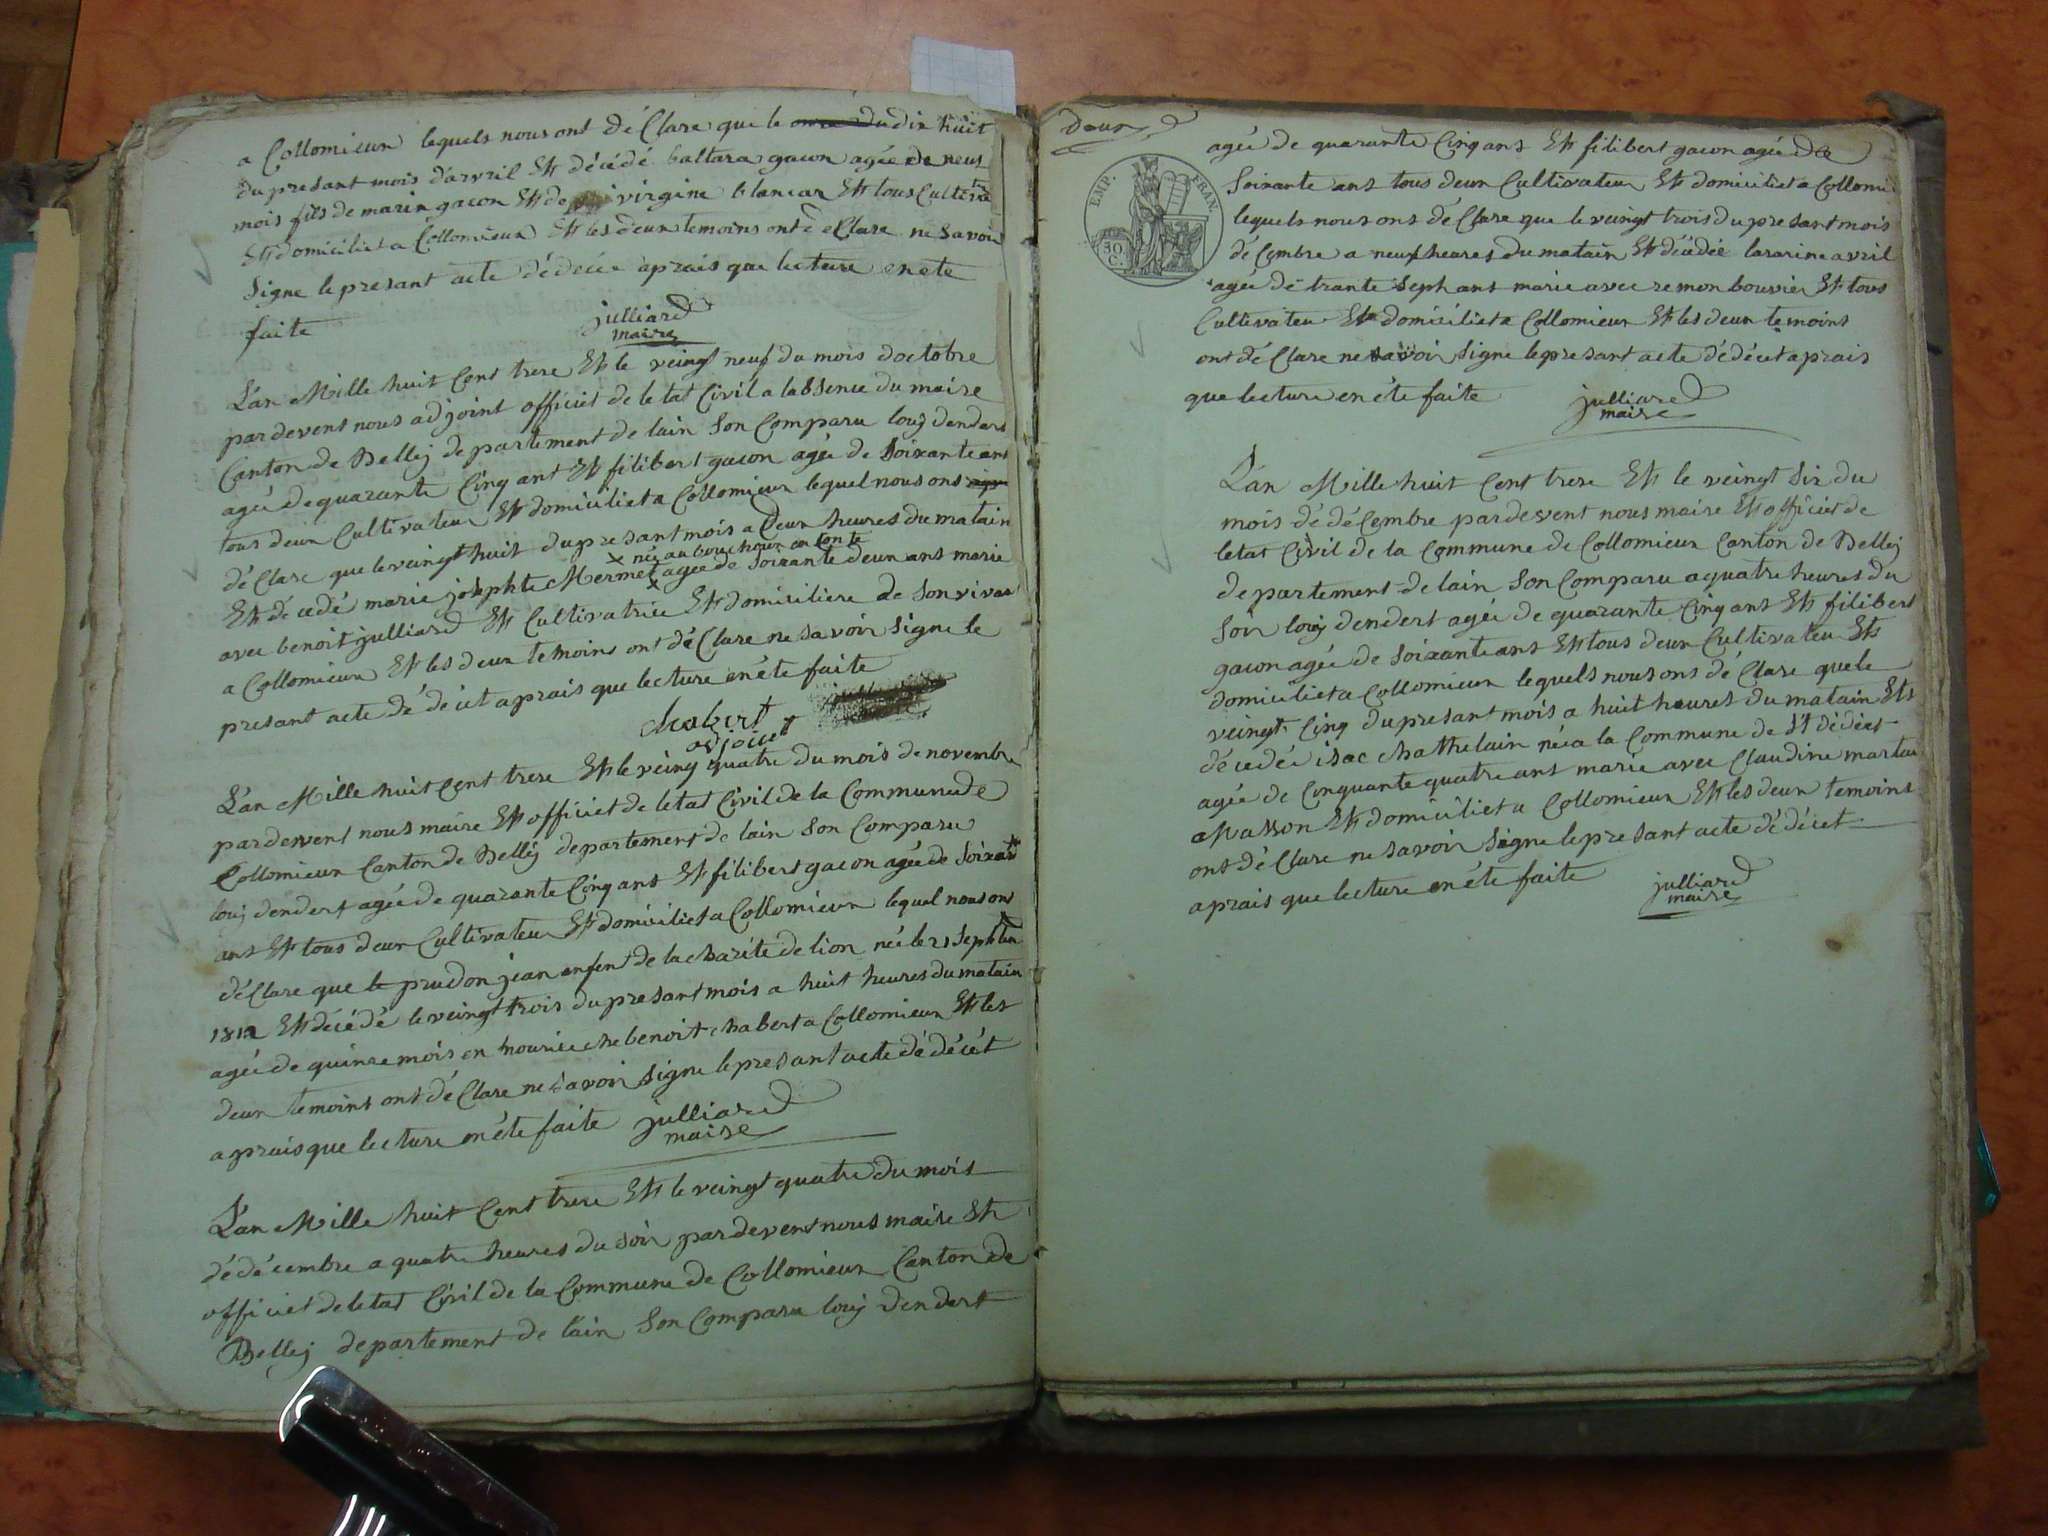 a Collomieux lequels nous ont dé Clare que le dix huit
du presant mois d'avril Et décédé baltara gacon agée de neuf
mois fils de marin gacon Et de virgine blancar Et tous Cultiva
Et domiciliet a Collomieux Et les deux temoins ont dé Clare ne savoir
Signe le presant acte dédecée aprais que lecture enete
faite
julliard
maire
L'an Mille huit Cent treze Et le veingt neuf du mois doctobre
pardevent nous adjoint officiet de letat Civil a labsence du maire
Canton de Bellej departement de lain Son Comparu louij dendert
agée de quarante Cinq ant Et filibert gacon agée de Soixante ans
tous deux Cultivateur Et domiciliet a Collomieux lequel nous ons
dé Clare que le veingt huit du presant mois a Deux heures du matain
× née au bouchoux en conte
Et décedé marie josephte Mermet × agée de soixante deux ans marie
avec benoit julliard Et Cultivatrice Et domiciliere de Son vivas
a Collomieux Et les deux temoins ont dé Clare ne savoir Signe le
presant acte dé décet aprais que lecture enéte faite
chabert
adjoint
L'an Mille huit Cent treze Et le veing quatre du mois de novembre
pardevent nous maire Et officiet de letat Civil de la Commune de
Collomieux Canton de Bellej departement de lain Son Comparu
louij dendert agée de quarante Cinq ans Et filibert gacon agée de Soixante
ans Et tous deux Cultivateur Et domiciliet a Collomieux lequel nous ons
déClare que le prudon jean enfent de la charite de lion née le 21 Septem
1812 Et décédé le veingt trois du presant mois a huit heures du matain
agée de quinze mois en nourice che benoit chabert a Collomieux Et les
deux temoins ont dé Clare ne savoir signe le presant acte dé décét
aprais que lecture enéte faite
julliard
maire
L'an Mille huit Cent treze Et le veingt quatre du mois
dé décembre a quatre heures du soir pardevent nous maire Et
officiet de letat Civil de la Commune de Collomieux Canton de
Bellej departement de lain Son Comparu louij dendert
deux
EMP. FRAN.
30 C.
agée de quarante Cinq ans Et filibert gacon agée de
Soixante ans tous deux Cultivateur Et domiciliet a Collomi
lequels nous ons dé Clare que le veingt trois du presant mois
dé Cembre a neuf heures du matain Et décédée lararine avril
agée de trante Seph ans marie avec remon bouvier Et tous
Cultivateu Et domiciliet a Collomieux Et les deux temoins
ont dé Clare ne savoir Signe le presant acte dé décet aprais
que lecture enéte faite
julliard
maire
L'an Mille huit Cent treze Et le veingt Six du
mois dé déCembre pardevent nous maire Et officiet de
letat Civil de la Commune de Collomieux Canton de Bellej
departement de lain Son Comparu a quatre heures du
Soir louij dendert agée de quarante Cinq ans Et filibert
gacon agée de Soixante ans Et tous deux Cultivateu Et
domiciliet a Collomieux lequels nous ons dé Clare que le
veingt Cinq du presant mois a huit heures du matain Et
décedée isac chathelain née a la Commune de St dédier
agée de Cinquante quatre ans marie avec Claudine martin
a Masson Et domiciliet a Collomieux Et les deux temoins
ont dé Clare ne savoir Signe le presant acte dé décet
aprais que lecture enéte faite
julliard
maire